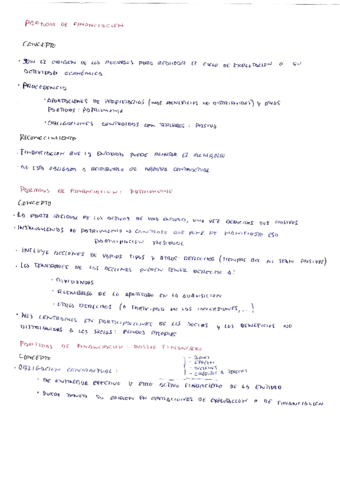 PARTIDAS DE FINANCIACIÓN
CONCEPTO
· SON EL ORIGEN DE LOS RECURSOS PARA REALIZAR EL CICLO DE EXPLOTACIÓN O SU
ACTIVIDAD ECONÓMICA
· PROCEDENCIA
· APORTACIONES DE PROPIETARIOS (MÁS BENEFICIOS NO DISTRIBUIDOS) Y OTRAS
PARTIDAS: PATRIMONIO
· OBLIGACIONES CONTRAÍDAS CON TERCEROS: PASIVO
RECONOCIMIENTO
· FINANCIACIÓN QUE LA ENTIDAD PUEDE
· NO ESTÁ OBLIGADA A
PARTIDAS DE FINANCIACIÓN: PATRIMONIO
CONCEPTO
· LA PARTE RESIDUAL DE LOS ACTIVOS DE UNA ENTIDAD, UNA VEZ DEDUCIDOS SUS PASIVOS
· INSTRUMENTOS DE PATRIMONIO: CONTRATO QUE PONE DE MANIFIESTO ESA
PARTICIPACIÓN RESIDUAL
· INCLUYE ACCIONES DE VARIOS TIPOS Y OTROS DERECHOS (SIEMPRE QUE NO SEAN PASIVOS)
· LOS TENEDORES DE LAS ACCIONES PUEDEN TENER DERECHO A:
· DIVIDENDOS
· REEMBOLSO DE LO APORTADO EN LA
· OTROS DERECHOS (A PARTICIPAR EN LAS INVERSIONES, ...)
· NOS CENTRAMOS EN PARTICIPACIONES DE LOS SOCIOS Y LOS BENEFICIOS NO
DISTRIBUIDOS A LOS SOCIOS: FONDOS PROPIOS
PARTIDAS DE FINANCIACIÓN: PASIVO FINANCIERO
CONCEPTO
· OBLIGACIÓN CONTRACTUAL:
· DE ENTREGAR EFECTIVO U OTRO ACTIVO FINANCIERO DE LA ENTIDAD
· PUEDE TENER SU ORIGEN EN OPERACIONES DE EXPLOTACIÓN O DE FINANCIACIÓN